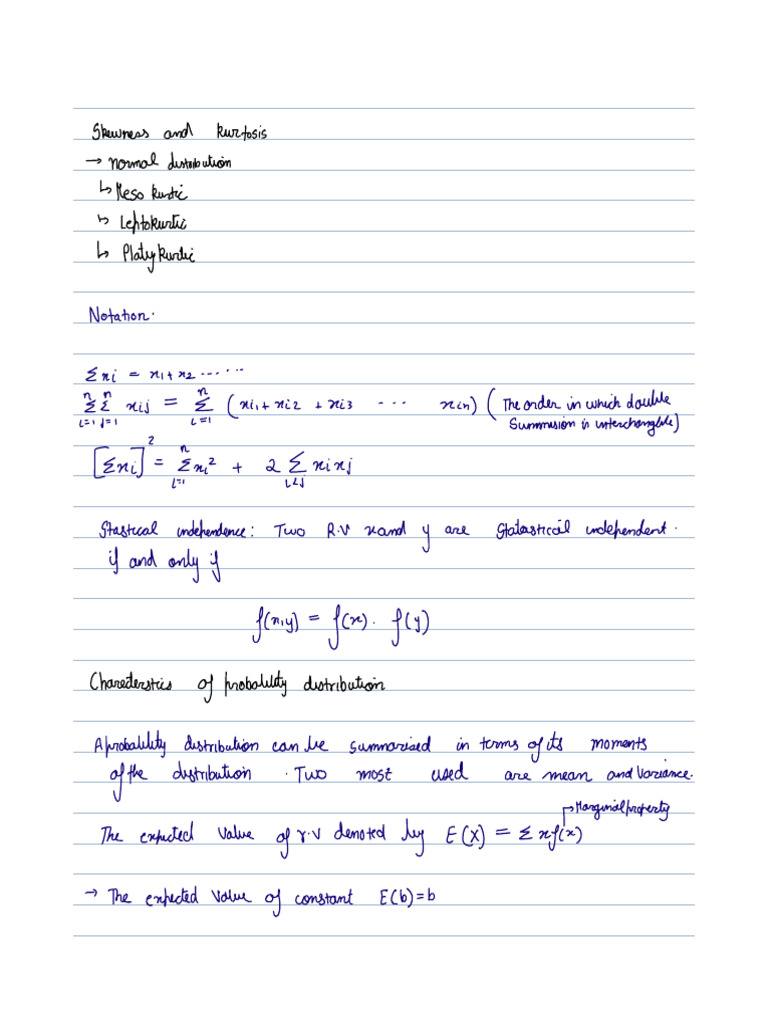 Skewness and kurtosis
→ normal distribution
↳ Meso kurtic
↳ Leptokurtic
↳ Platykurtic
Notation.
Σxi = x1 + x2 ......
n Σ i=1 n Σ j=1 xij = n Σ i=1 (xi1 + xi2 + xi3 ... xin) (The order in which double
Summision is interchangible)
[Σxi]² = n Σ i=1 xi² + 2 Σ i<j xixj
Stastical independence: Two R.V x and y are Statastical independent.
if and only if
f(x,y) = f(x). f(y)
Charecterstics of probability distribution
A probability distribution can be summarised in terms of its moments
of the distribution. Two most used are mean and variance.
↳ Marginal property
The expected value of r.v denoted by E(X) = Σ xf(x)
→ The expected value of constant E(b) = b